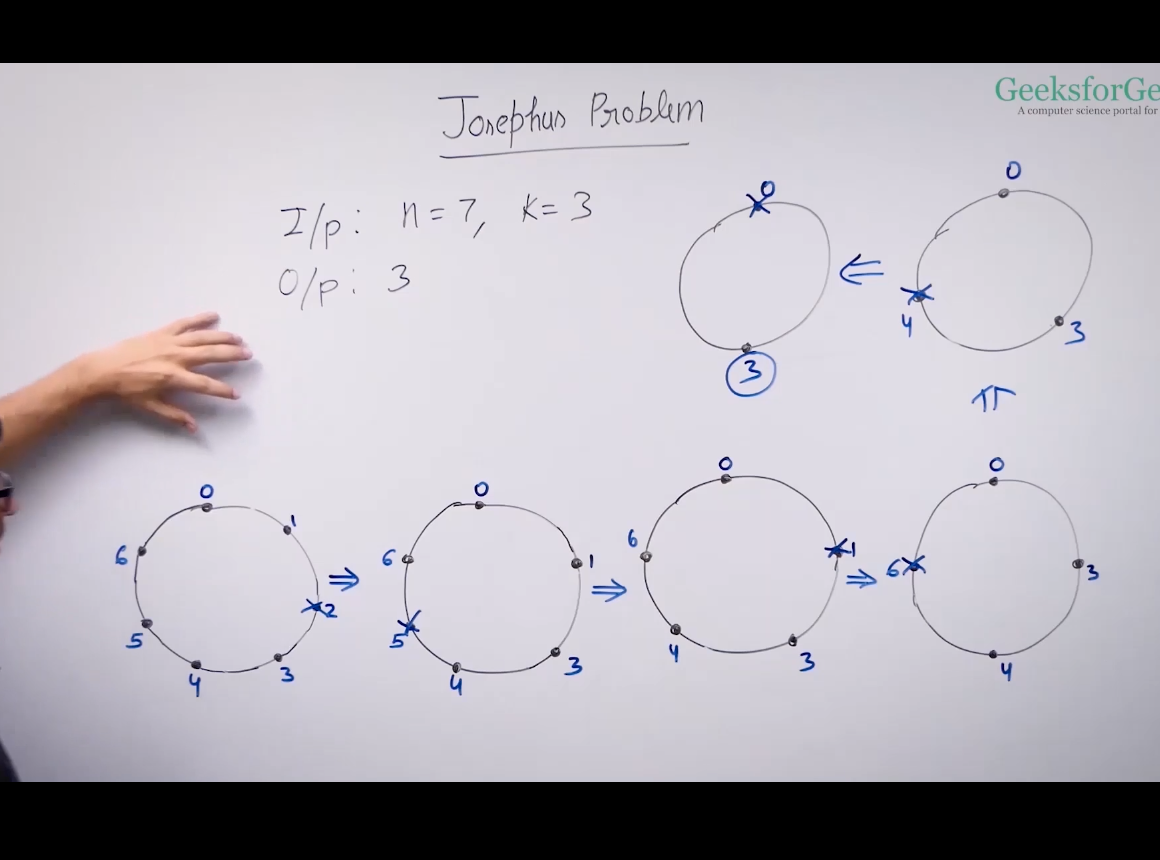 GeeksforGe
A computer science portal for
Josephus Problem
I/p: n = 7, k = 3
O/p: 3
0
3
0
4
3
0
1
2
3
4
5
6
0
1
3
4
5
6
0
1
3
4
6
0
3
4
6